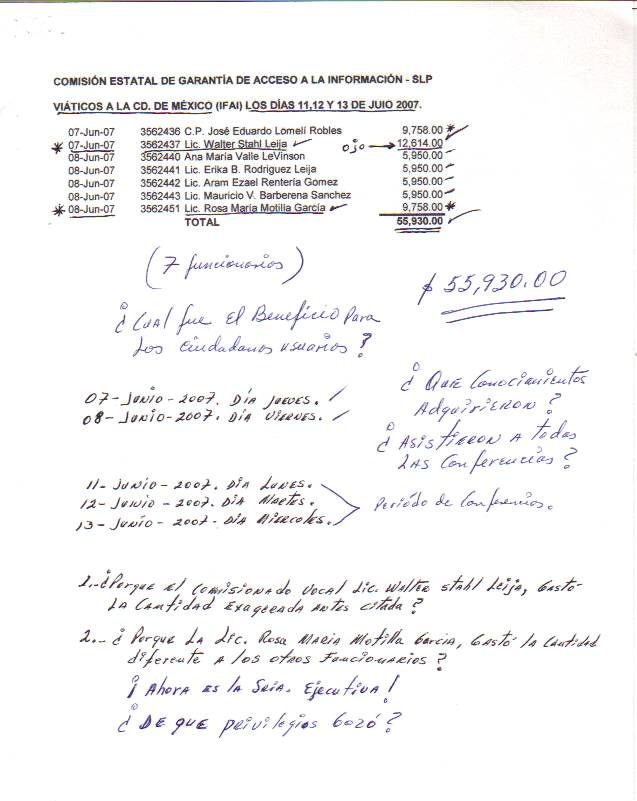 COMISIÓN ESTATAL DE GARANTÍA DE ACCESO A LA INFORMACIÓN - SLP
VIÁTICOS A LA CD. DE MÉXICO (IFAI) LOS DÍAS 11,12 Y 13 DE JUIO 2007.
07-Jun-07 3562436 C.P. José Eduardo Lomelí Robles 9,758.00 *
* 07-Jun-07 3562437 Lic. Walter Stahl Leija ojo → 12,614.00
08-Jun-07 3562440 Ana María Valle LeVinson 5,950.00
08-Jun-07 3562441 Lic. Erika B. Rodriguez Leija 5,950.00
08-Jun-07 3562442 Lic. Aram Ezael Rentería Gomez 5,950.00
08-Jun-07 3562443 Lic. Mauricio V. Barberena Sanchez 5,950.00
* 08-Jun-07 3562451 Lic. Rosa María Motilla García 9,758.00 *
TOTAL 55,930.00
(7 funcionarios)
$ 55,930.00
¿Cual fue El Beneficio Para
Los Ciudadanos usuarios?
¿Que Conocimientos
Adquirieron?
¿Asistieron a todas
Las Conferencias?
07-Junio-2007. Día Jueves.
08-Junio-2007. Día Viernes.
11-Junio-2007. Día Lunes.
12-Junio-2007. Día Martes.
13-Junio-2007. Día Miercoles.
Periódo de Conferencias.
1.-¿Porque el Comisionado Vocal Lic. Walter Stahl Leija, Gastó
La Cantidad Exagerada antes citada?
2.-¿Porque La Lic. Rosa Maria Motilla Garcia, Gastó la Cantidad
diferente a los otros Funcionarios?
¡Ahora es la Sria. Ejecutiva!
¿De que privilegios Gozó?